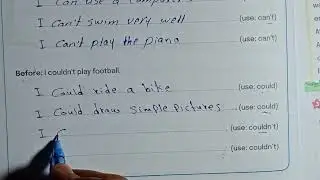 I can use a computer
I Can't swim very well (use: can't)
I Can't play the piano (use: can't)
Before: I couldn't play football.
I Could ride a bike (use: could)
I Could draw simple pictures (use: could)
I (use: couldn't)
(use: couldn't)